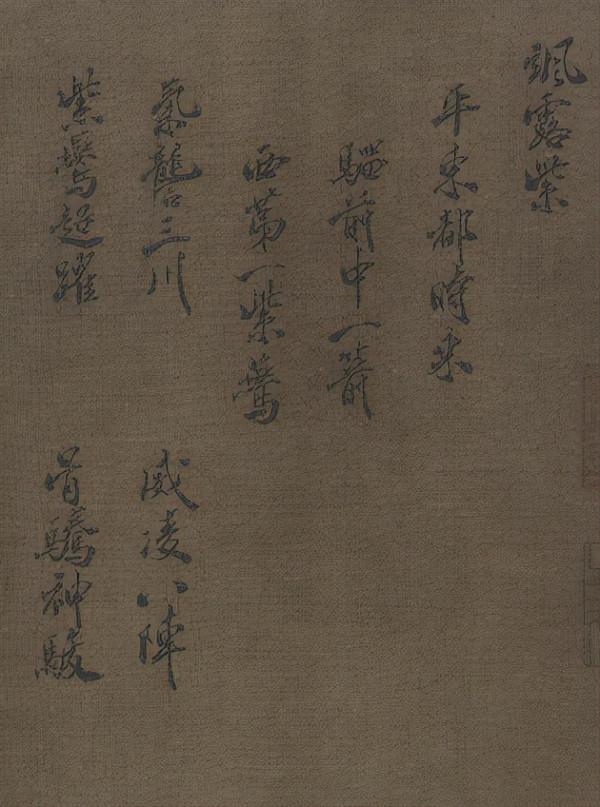 紫鷰超躍 骨騰神駿
氣讋三川 威凌八陣
西第一紫鷰
騮前中一箭
平東都時乘
颯露紫